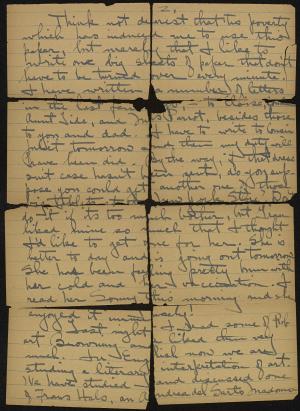 2.
Think not dearest that its poverty
which has induced me to use this
paper, but merely that I like to
write on big sheets of paper that don't
have to be turned over every minute.
I have written a number of letters
in the last few to Louise, some
Aunt Side, and besides those
to you and dad. I have to write to Cousin
tomorrow and then my duty will
have been did. By the way, if that dress
suit case hasn't been sent, do you sup-
pose you could get another one of those
do it if its too much bother, but Jean
liked mine so much that I thought
I'd like to get one for her. She is
better to day and is going out tomorrow.
She has been feeling pretty bum with
her cold and her vaccination. I
read her Some this morning and she
enjoyed it immensely!
Last night I read some of Rob-
ert Browning and liked them very
much. In English now we are
studying a literary interpretation of art
We have studied and discussed one
of Frans Hals, an Andrea del Sarto Madonna